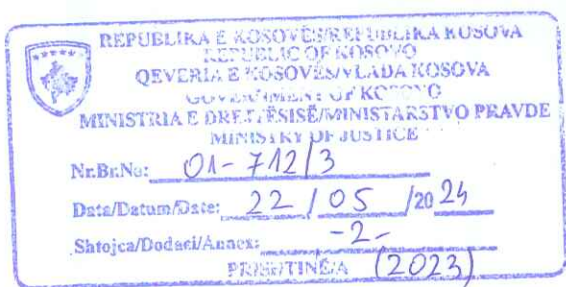 REPUBLIKA E KOSOVËS/REPUBLIKA KOSOVA
REPUBLIC OF KOSOVO
QEVERIA E KOSOVËS/VLADA KOSOVA
GOVERNMENT OF KOSOVO
MINISTRIA E DREJTËSISË/MINISTARSTVO PRAVDE
MINISTRY OF JUSTICE
Nr.Br.No: 01-712/3
Data/Datum/Date: 22/05/2024
Shtojca/Dodaci/Annex: -2-
PRISHTINË/A (2023)